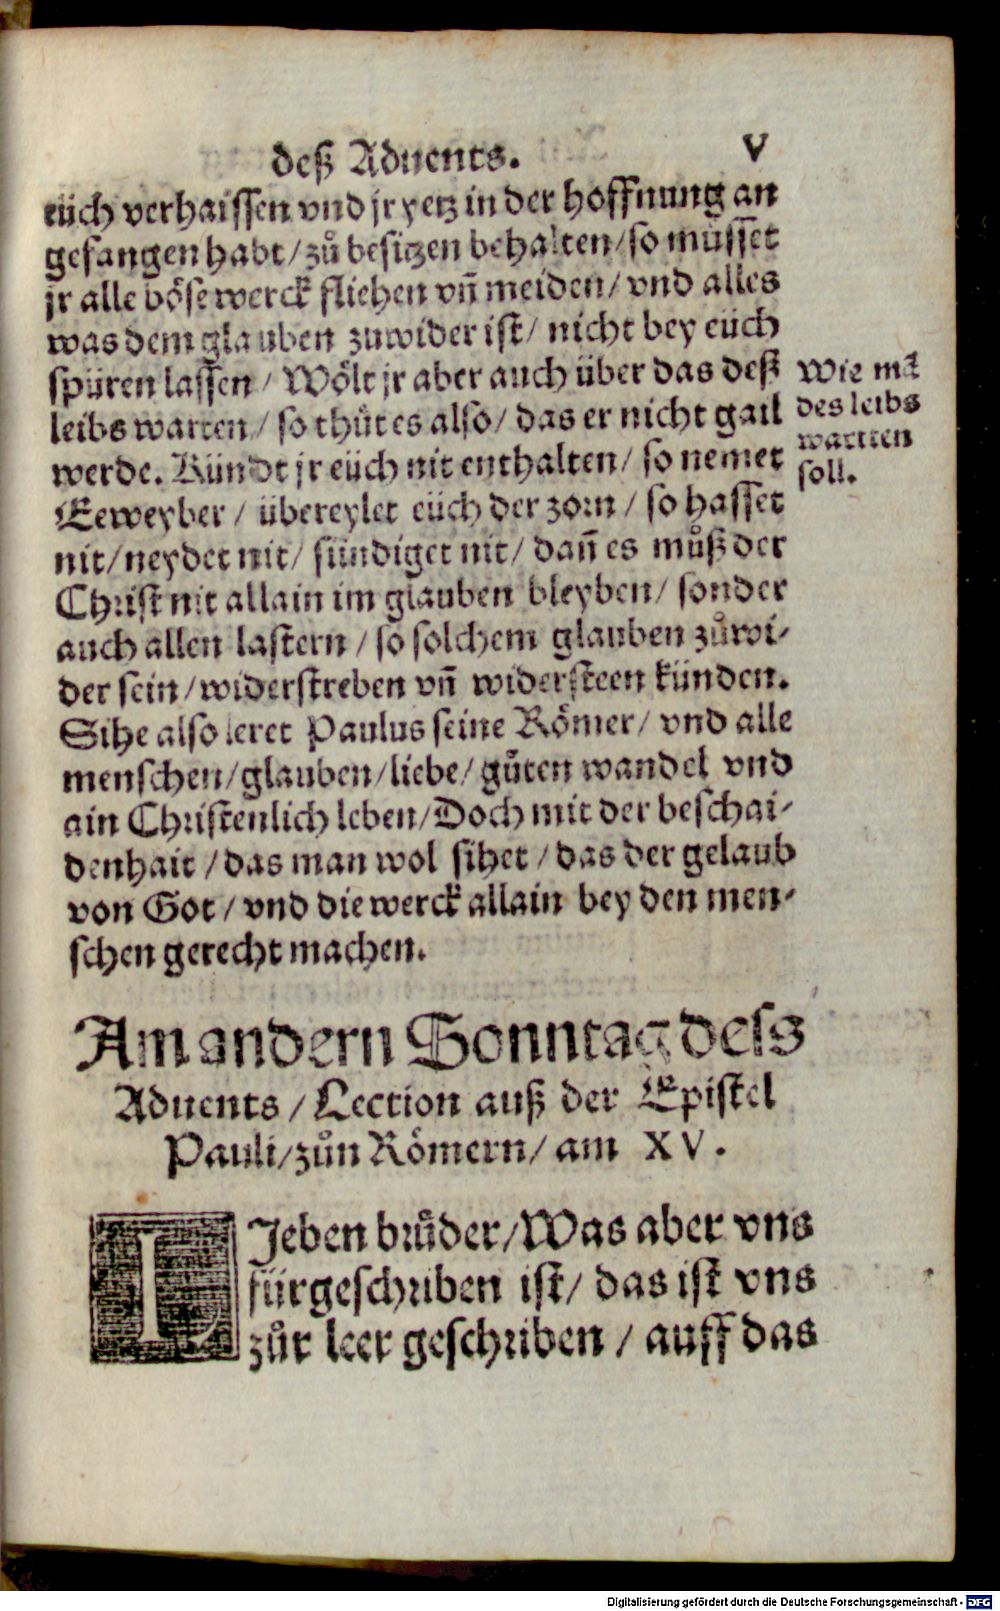 deß Aduents. V
eüch verhaissen vnd jr yetz in der hoffnung an
gefangen habt / zů besitzen behalten / so müsset
jr alle böse werck fliehen vñ meiden / vnd alles
was dem glauben zuwider ist / nicht bey eüch
spüren lassen / Wölt jr aber auch über das deß
leibs warten / so thůt es also / das er nicht gail
werde. Kündt jr eüch nit enthalten / so nemet
Eeweyber / übereylet eüch der zorn / so hasset
nit / neydet nit / sündiget nit / dañ es můß der
Christ nit allain im glauben bleyben / sonder
auch allen lastern / so solchem glauben zůwi-
der sein / widerstreben vñ widersteen künden.
Sihe also leret Paulus seine Römer / vnd alle
menschen / glauben / liebe / gůten wandel vnd
ain Christenlich leben / Doch mit der beschai-
denhait / das man wol sihet / das der gelaub
von Got / vnd die werck allain bey den men-
schen gerecht machen.
Wie mã
des leibs
wartten
soll.
Am andern Sonntag dess
Aduents / Lection auß der Epistel
Pauli / zůn Römern / am XV.
LJeben brůder / Was aber vns
fürgeschriben ist / das ist vns
zůr leer geschriben / auff das
Digitalisierung gefördert durch die Deutsche Forschungsgemeinschaft - DFG